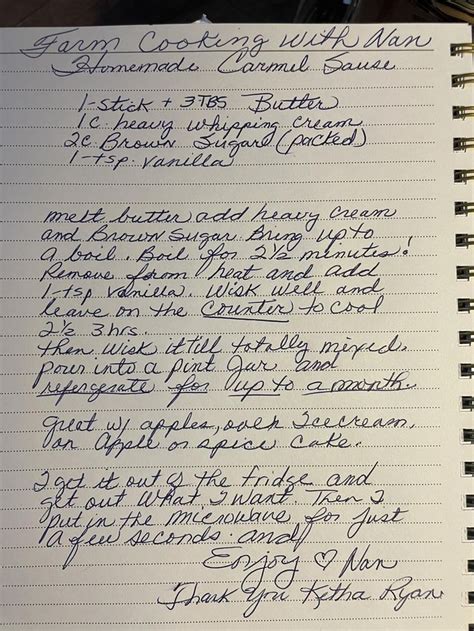 Farm Cooking With Nan
Homemade Carmel Sause
1-stick + 3TBS Butter
1 c. heavy whipping cream
2c. Brown Sugare (packed)
1-tsp. vanilla
melt butter add heavy cream
and Brown Sugar. Bring up to
a boil. Boil for 2½ minutes!
Remove form heat and add
1-tsp vanilla. Wisk well and
leave on the counter to cool
2½ 3hrs.
then Wisk it till totally mixed,
pour into a pint Jar and
refergerate for up to a month.
great w/ apples, over Icecream,
on Apple or spice Cake.
I get it out of the fridge and
get out what I want. Then I
put in the microwave for Just
a few seconds and
Enjoy ♡ Nan
Thank You Ketha Ryan